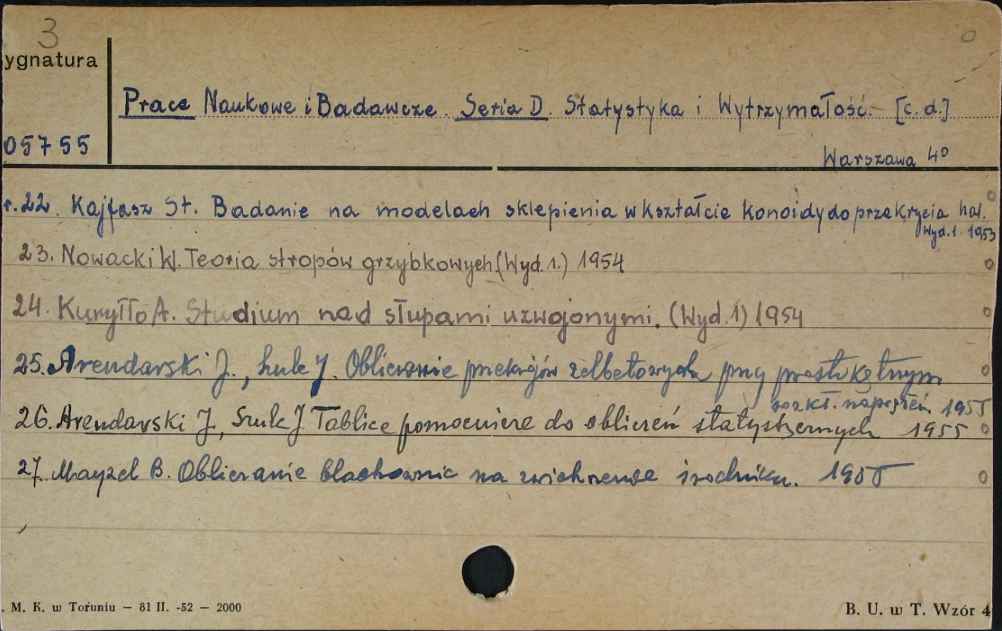 3
ygnatura
Prace Naukowe i Badawcze. Seria D. Statystyka i Wytrzymałość. [c. d.]
05755
Warszawa 4º
r. 22. Kajfasz St. Badanie na modelach sklepienia w kształcie konoidy do przekrycia hal.
Wyd. 1. 1953
23. Nowacki W. Teoria stropów grzybkowych (Wyd. 1.) 1954
24. Kuryłło A. Studium nad słupami uzwojonymi. (Wyd. 1) 1954
25. Arendarski J., Szulc J. Obliczanie przekrojów żelbetowych przy prostokątnym
rozkł. naprężeń 1955
26. Arendarski J., Szulc J Tablice pomocnicze do obliczeń 1955
27. Mayzel B. Obliczanie blachownic na zwichrzenie środnika. 1955
. M. K. w Toruniu — 81 II. -52 — 2000
B. U. w T. Wzór 4